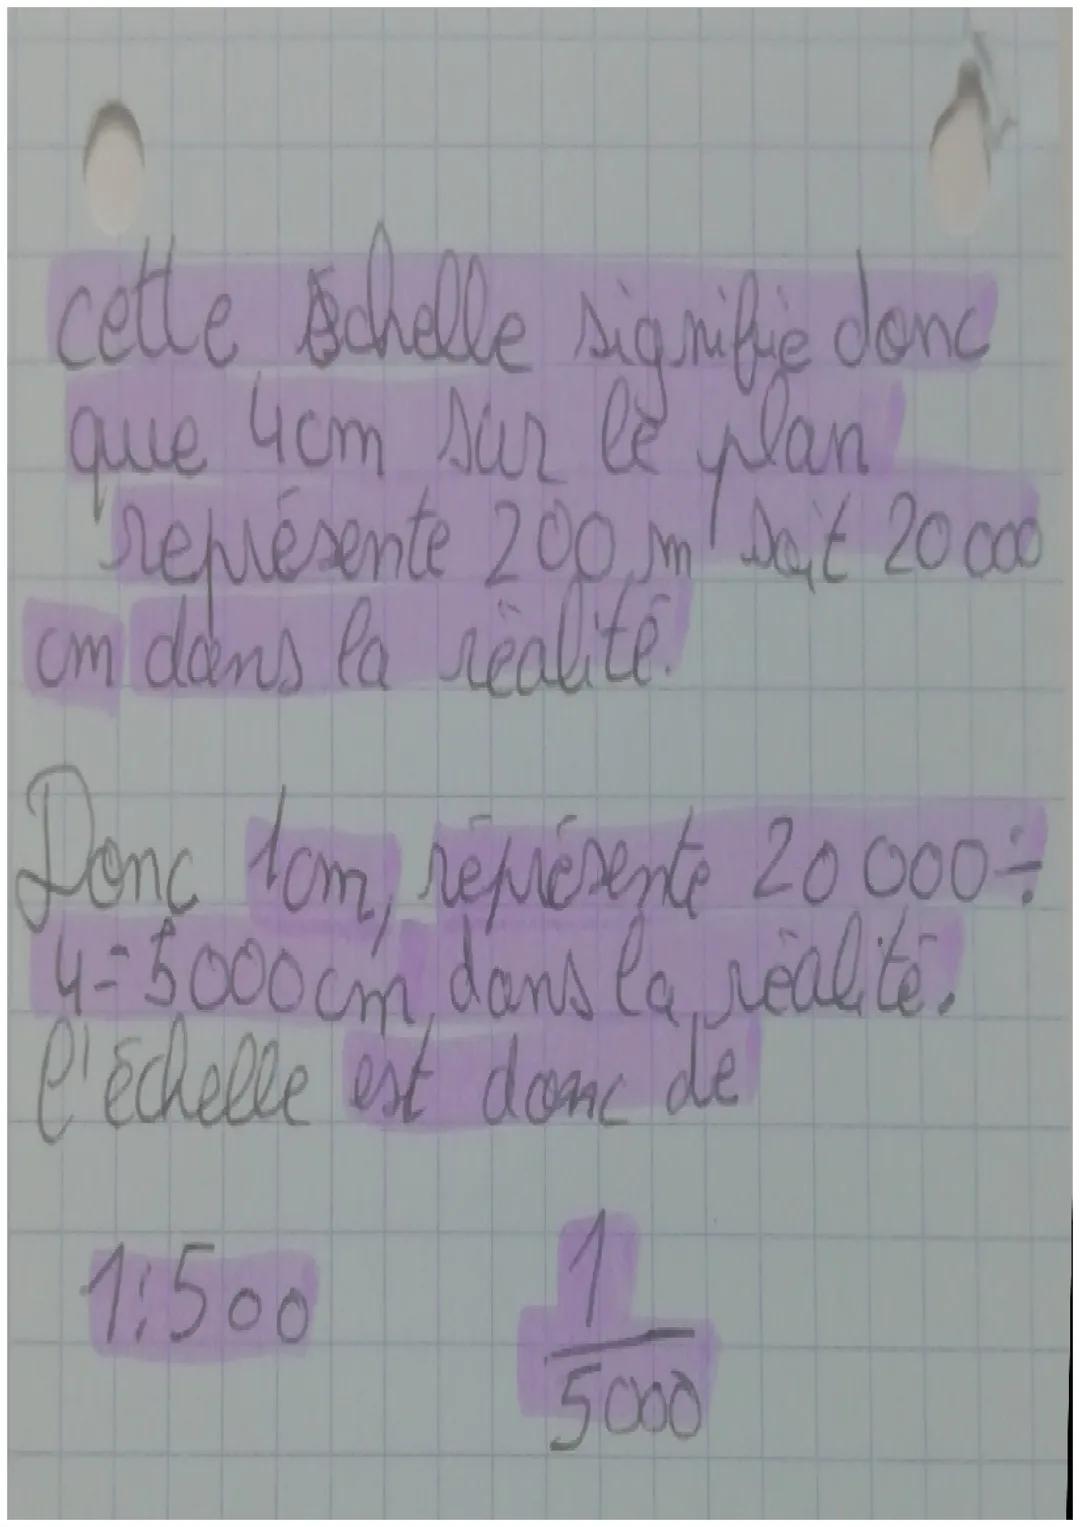 cette échelle signifie donc
que 4cm sur le plan
représente 200 m soit 20 000
cm dans la réalité.
Donc 1cm, représente 20 000 ÷
4 = 5000 cm, dans la réalité.
l'échelle est donc de
1:500
1
5000